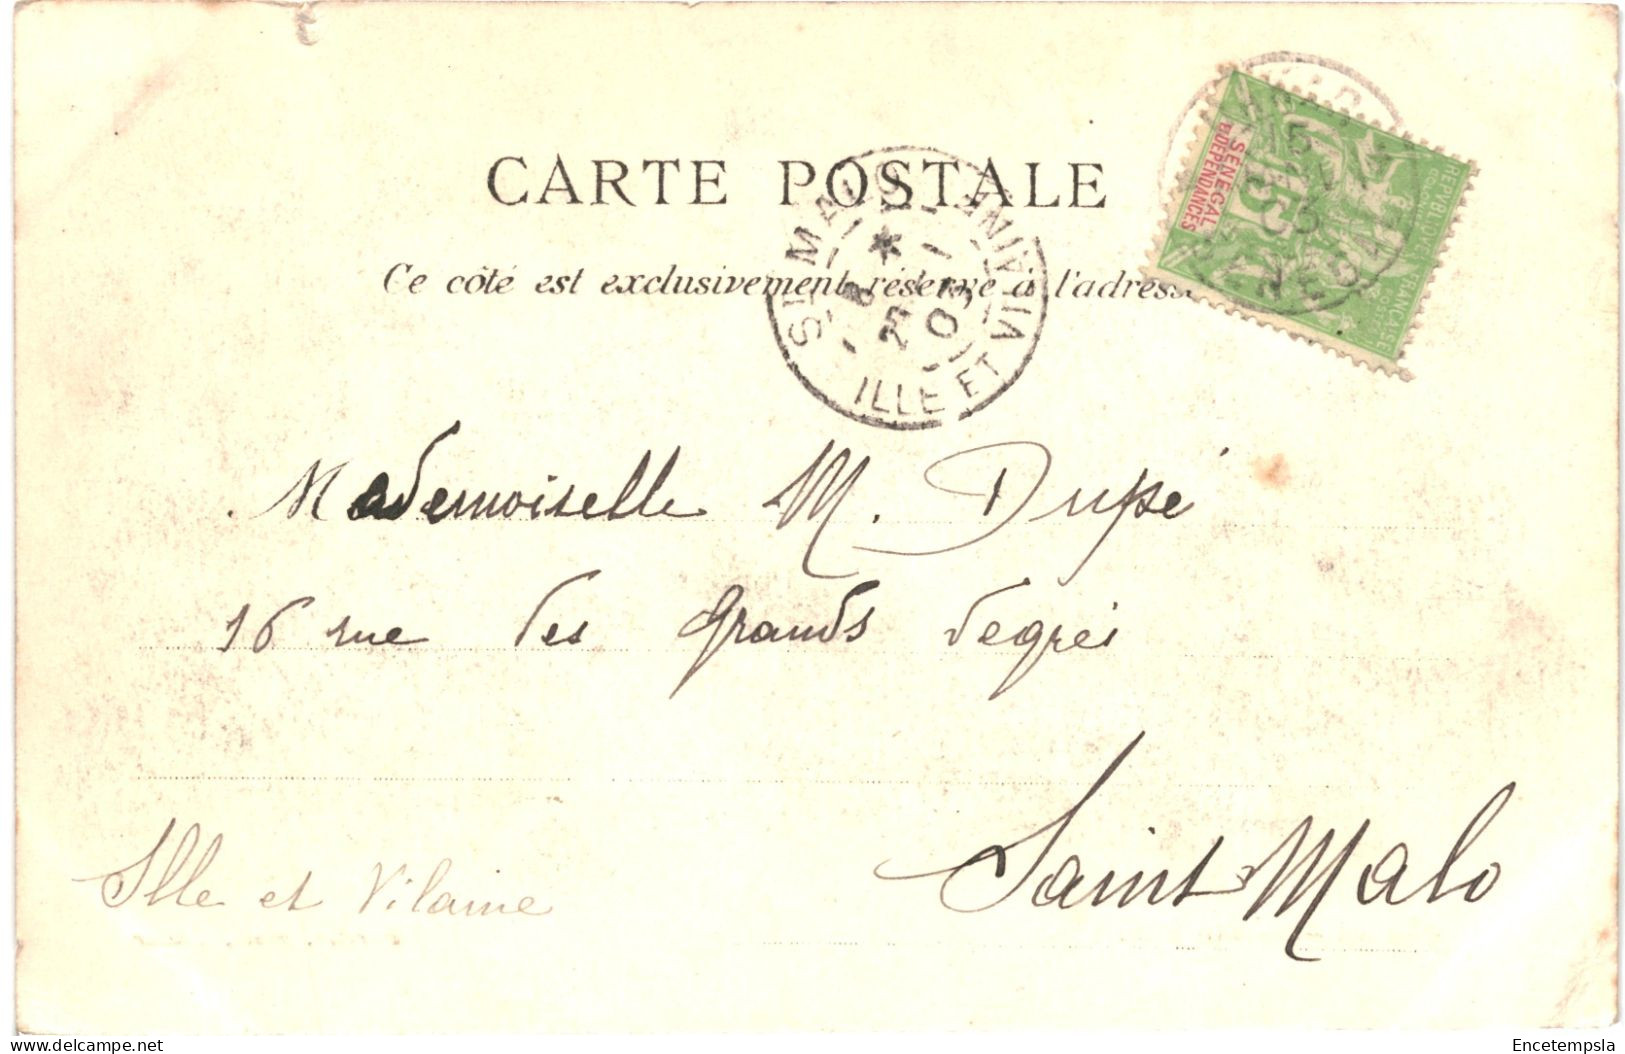 CARTE POSTALE
Ce côté est exclusivement réservé à l'adresse
SÉNÉGAL
ET DÉPENDANCES
5
REPVBLIQVE FRANÇAISE
15
03
SÉNÉGAL
ST MALO
ILLE ET VILAINE
25
1
03
Mademoiselle M. Dupé
16 rue des Grands degrés
Saint Malo
Ille et Vilaine
Encetempsla